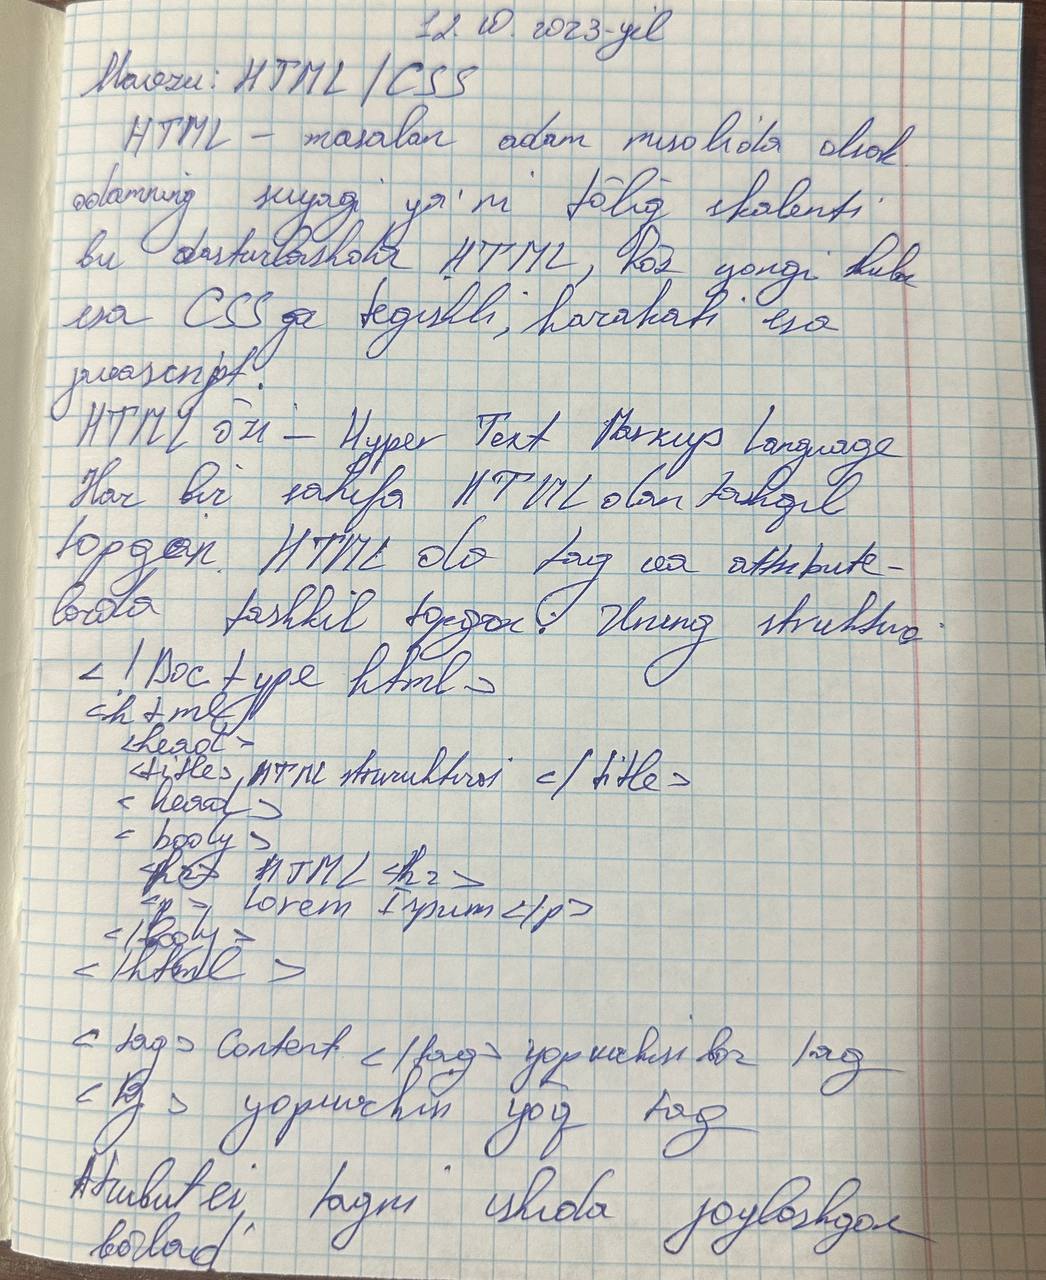 12.10.2023-yil
Mavzu: HTML/CSS
HTML – masalan adam misolida olsak
odamning suyagi ya'ni tõliq skalenti
bu dasturlashda HTML, kõz
esa CSS ga tegishli, harakati esa
javascript.
HTML õzi – Hyper Text Markup Language
Har bir sahifa HTML dan tashqil
topgan. HTML da tag va attribute-
larda tashkil topgan. Uning struktura
<!Doctype html>
<html>
<head>
<title> HTML sturukturasi </title>
<head>
<body>
<h2> HTML <h2>
<p> Lorem Ipsum </p>
</body>
</html>
<tag> Content </tag> yopuvchisi bor tag
yopuvchisi yoq tag
tagni ichida joylashgan
bõladi